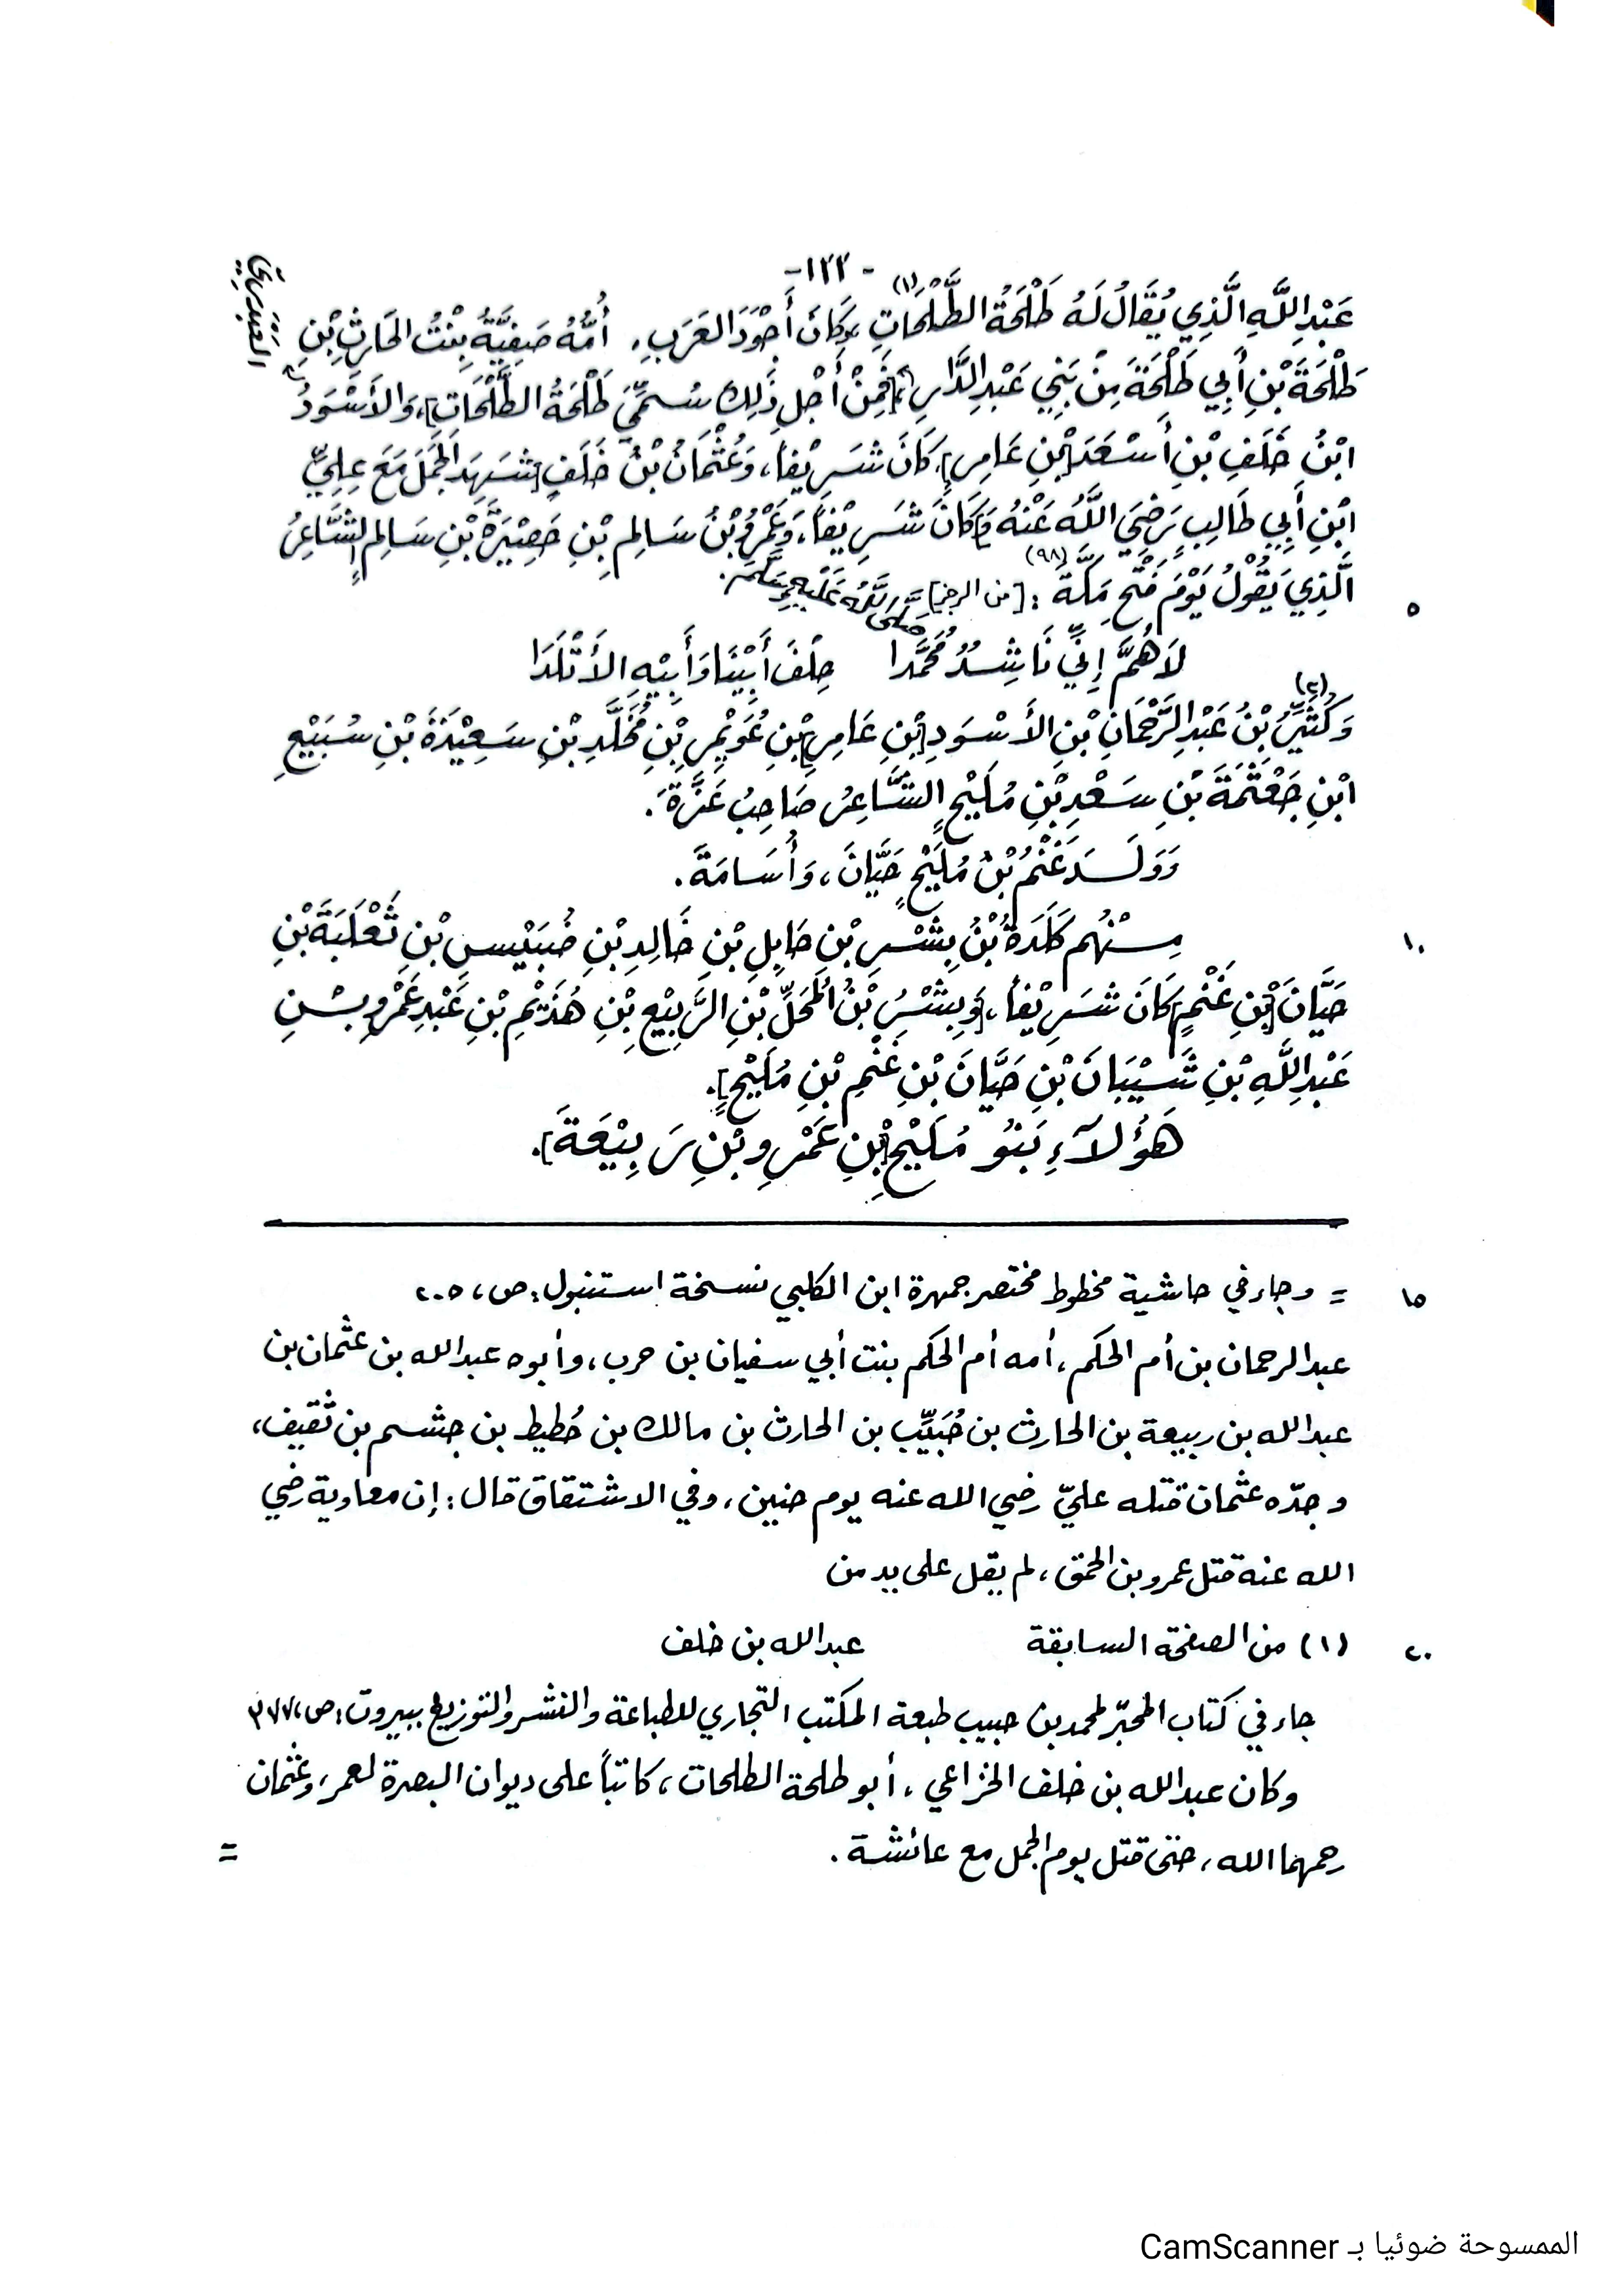 -١٢٢-
عَبْدِ اللَّهِ الَّذِي يُقَالُ لَهُ طَلْحَةُ الطَّلْحَاتِ (١) وَكَانَ أَجْوَدَ العَرَبِ، أُمُّهُ صَفِيَّةُ بِنْتُ الحَارِثِ بْنِ
العَبْدَرِيِّ
طَلْحَةَ بْنِ أَبِي طَلْحَةَ مِنْ بَنِي عَبْدِ الدَّارِ، [فَمِنْ أَجْلِ ذَلِكَ سُمِّيَ طَلْحَةُ الطَّلْحَاتِ]، وَالأَسْوَدُ
ابْنُ خَلَفِ بْنِ أَسْعَدَ [بْنِ عَامِرٍ]، كَانَ شَرِيْفاً، وَعُثْمَانُ بْنُ خَلَفٍ [شَهِدَ الجَمَلَ مَعَ عَلِيِّ
ابْنِ أَبِي طَالِبٍ رَضِيَ اللَّهُ عَنْهُ وَ] كَانَ شَرِيْفاً، وَعَمْرُو بْنُ سَالِمِ بْنِ حَصِيْرَةَ بْنِ سَالِمٍ الشَّاعِرُ
٥ الَّذِي يَقُوْلُ يَوْمَ فَتْحِ مَكَّةَ (٩٨) : [من الرجز] = صَلَّى اللَّهُ عَلَيْهِ وَسَلَّمَ.
لَاهُمَّ إِنِّي نَاشِدٌ مُحَمَّدا حِلْفَ أَبِيْنَا وَأَبِيْهِ الأَتْلَدَا
وَكُثَيِّرُ (٢) بْنُ عَبْدِ الرَّحْمَانِ بْنِ الأَسْوَدِ [بْنِ عَامِرِ] بْنِ عُوَيْمِرِ بْنِ مُخَلَّدِ بْنِ سَعِيْدَةَ بْنِ سُبَيْعِ
ابْنِ جَعْثَمَةَ بْنِ سَعْدِ بْنِ مُلَيْحٍ الشَّاعِرُ صَاحِبُ عَزَّةَ.
وَوَلَــدَ غَنْمُ بْنُ مُلَيْحٍ حَيَّانَ، وَأُسَامَةَ.
١٠ مِــنْهُم كَلَدَةُ بْنُ بِشْرِ بْنِ حَابِلِ بْنِ خَالِدِ بْنِ خُبَيْسِ بْنِ ثَعْلَبَةَ بْنِ
حَيَّانَ [بْنِ غَنْمٍ] كَانَ شَرِيْفاً، [وَبِشْرُ بْنُ المُحَلِّ بْنِ الرَّبِيْعِ بْنِ هُذَيْمِ بْنِ عَبْدِ عَمْرِو بْــنِ
عَبْدِ اللَّهِ بْنِ شَيْبَانَ بْنِ حَيَّانَ بْنِ غَنْمِ بْنِ مُلَيْحٍ].
هَؤُلَآءِ بَنُو مُلَيْحِ [بْنِ عَمْرِو بْنِ رَبِيْعَةَ].
١٥ = وجاء في حاشية مخطوط مختصر جمهرة ابن الكلبي نسخة استنبول: ص، ٢٠٥
عبد الرحمان بن أم الحكم، أمه أم الحكم بنت أبي سفيان بن حرب، وأبوه عبد الله بن عثمان بن
عبد الله بن ربيعة بن الحارث بن حُبَيِّب بن الحارث بن مالك بن حُطيط بن جشم بن ثقيف،
وجدّه عثمان قتله عليّ رضي الله عنه يوم حنين، وفي الاشتقاق قال: إن معاوية رضي
الله عنه قتل عمرو بن الحمق، لم يقل على يد من
٢٠ (١) من الصفحة السابقة عبد الله بن خلف
جاء في كتاب المحبّر لمحمد بن حبيب طبعة المكتب التجاري للطباعة والنشر والتوزيع ببيروت: ص، ٣٧٧
وكان عبد الله بن خلف الخزاعي، أبو طلحة الطلحات، كاتباً على ديوان البصرة لعمر، وعثمان
رحمهما الله، حتى قتل يوم الجمل مع عائشة. =
الممسوحة ضوئيا بـ CamScanner